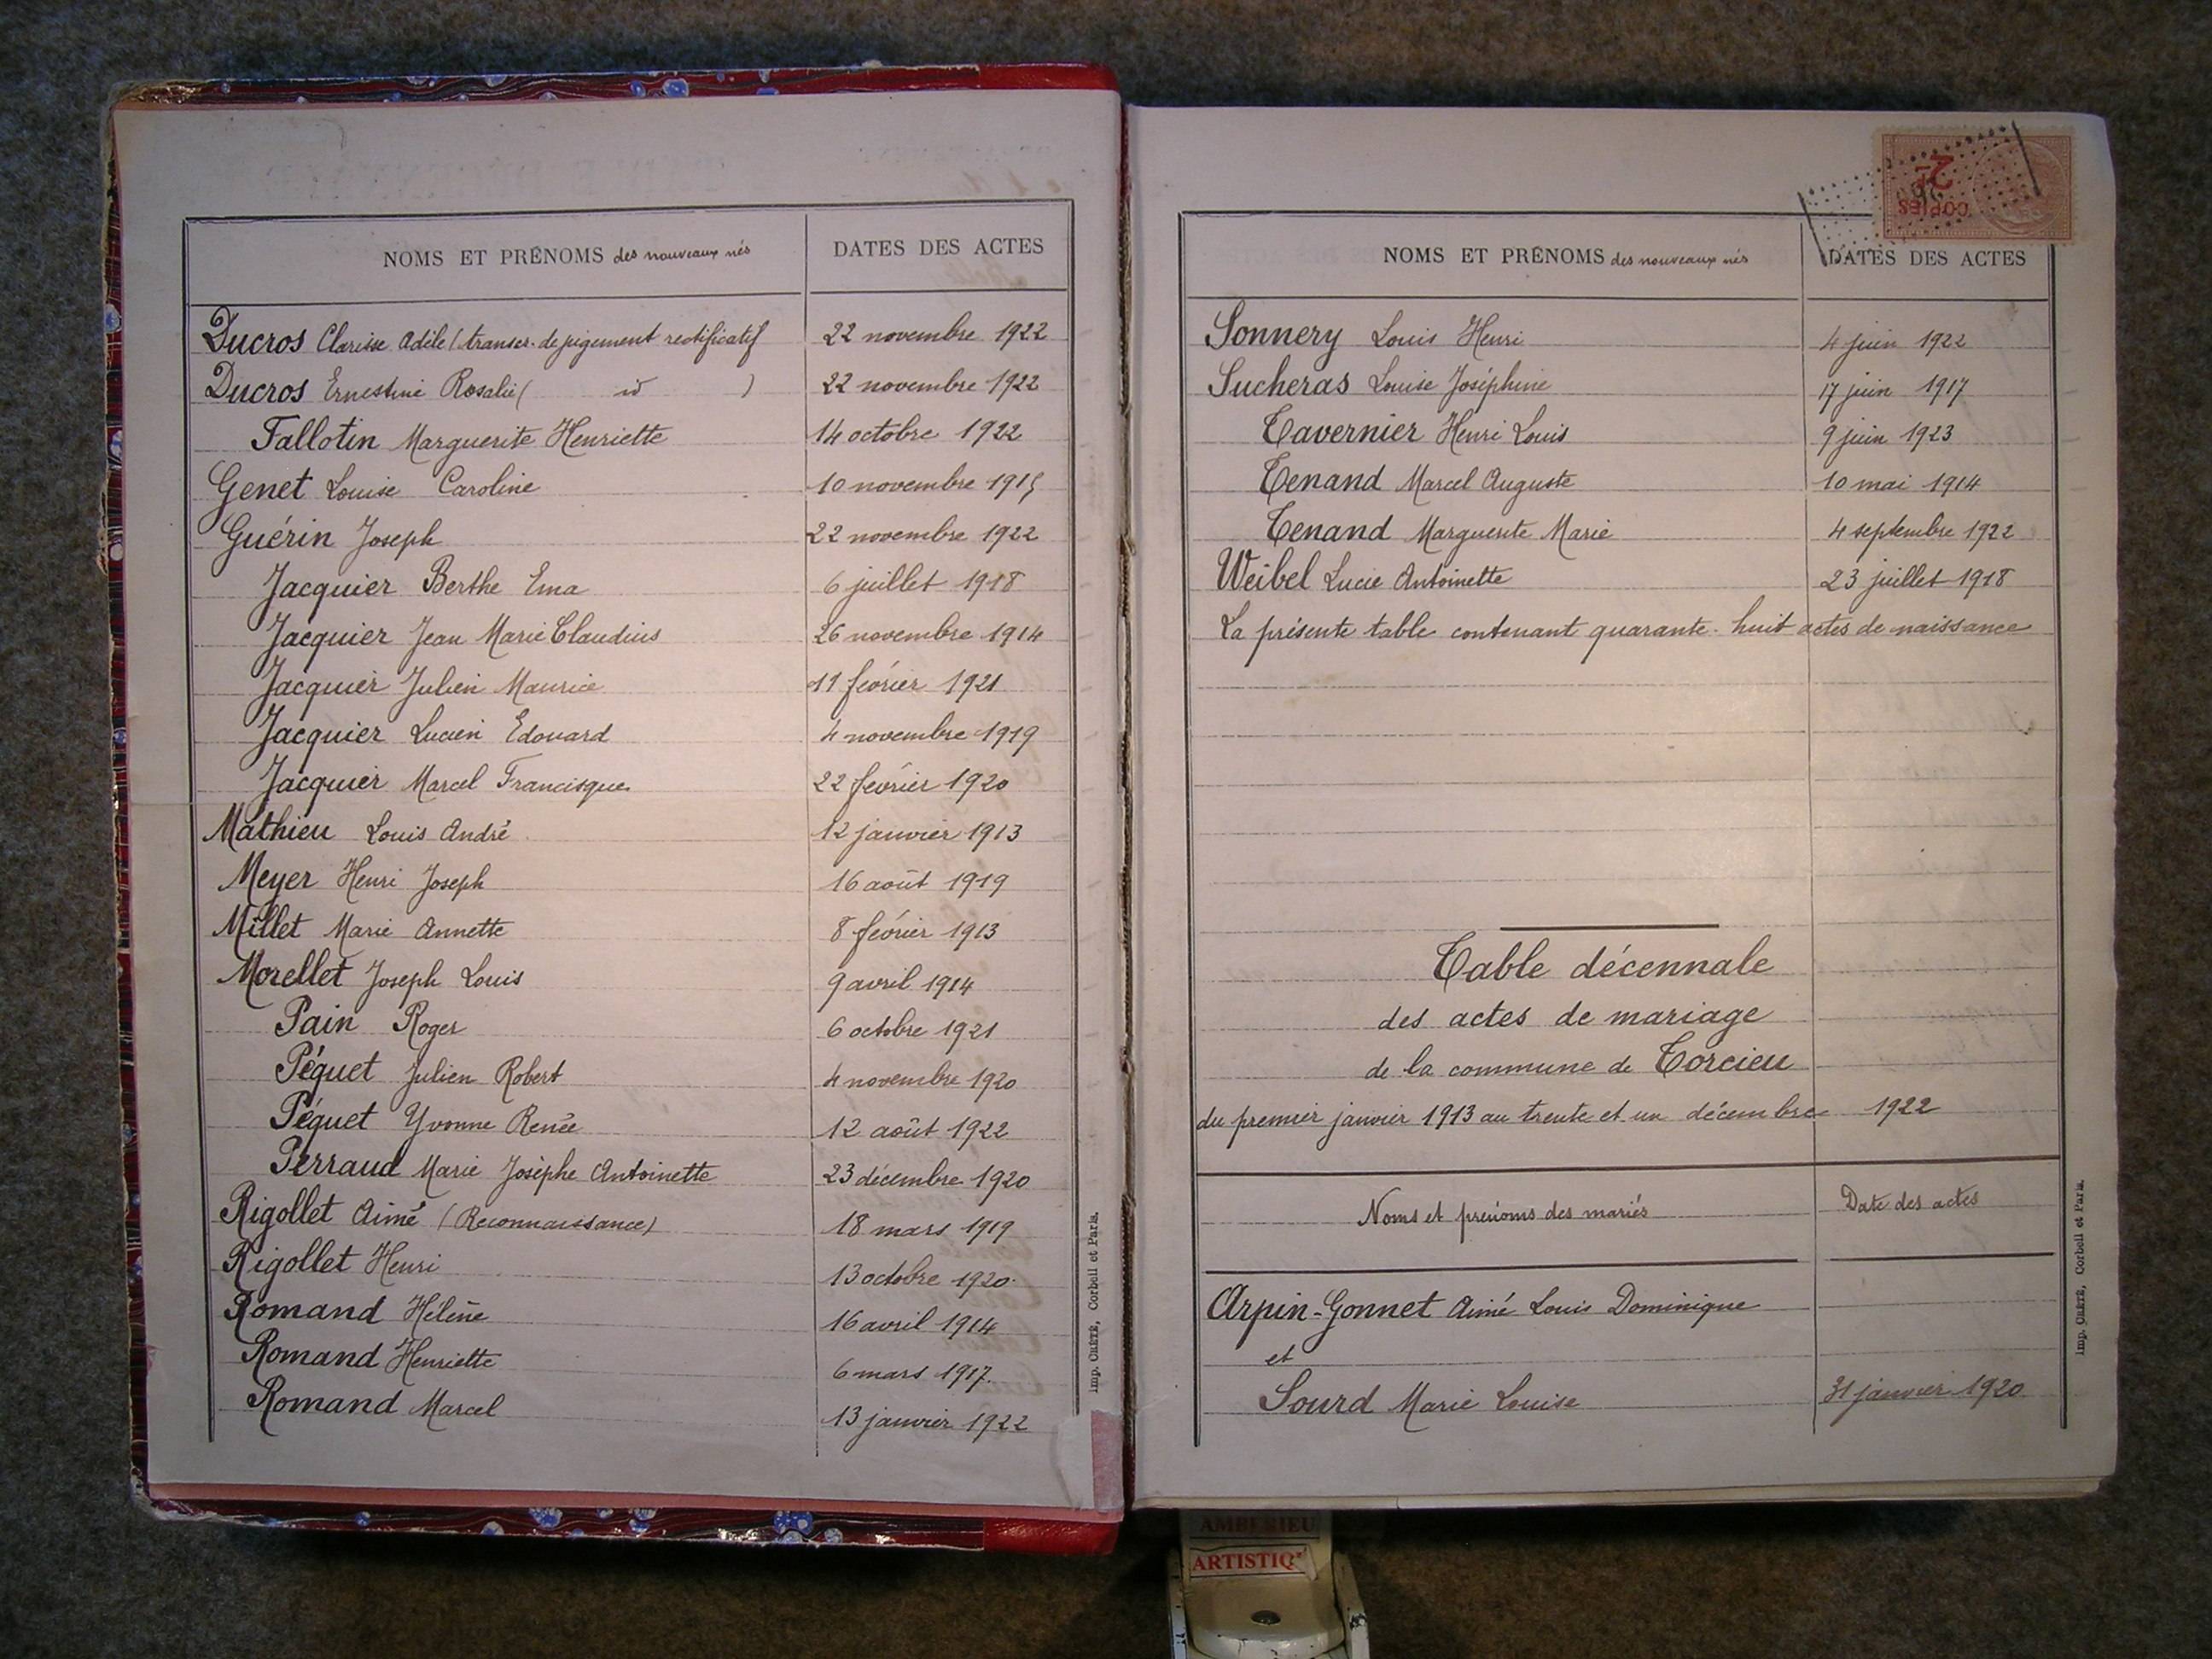 NOMS ET PRÉNOMS des nouveaux nés DATES DES ACTES
Ducros Clarisse Adèle (transcr. de jugement rectificatif 22 novembre 1922
Ducros Ernestine Rosalie ( id ) 22 novembre 1922
Fallotin Marguerite Henriette 14 octobre 1922
Genet Louise Caroline 10 novembre 1915
Guérin Joseph 22 novembre 1922
Jacquier Berthe Ema 6 juillet 1918
Jacquier Jean Marie Claudius 26 novembre 1914
Jacquier Julien Maurice 11 février 1921
Jacquier Lucien Edouard 4 novembre 1919
Jacquier Marcel Francisque 22 février 1920
Mathieu Louis André 12 janvier 1913
Meyer Henri Joseph 16 août 1919
Millet Marie Annette 8 février 1913
Morellet Joseph Louis 9 avril 1914
Pain Roger 6 octobre 1921
Péquet Julien Robert 4 novembre 1920
Péquet Yvonne Renée 12 août 1922
Perraud Marie Josèphe Antoinette 23 décembre 1920
Rigollet Aimé (Reconnaissance) 18 mars 1919
Rigollet Henri 13 octobre 1920
Romand Hélène 16 avril 1914
Romand Henriette 6 mars 1917.
Romand Marcel 13 janvier 1922
Imp. CRÉTÉ, Corbeil et Paris.
COPIES
NOMS ET PRÉNOMS des nouveaux nés DATES DES ACTES
Sonnery Louis Henri 4 juin 1922
Sucheras Louise Joséphine 17 juin 1917
Tavernier Henri Louis 9 juin 1923
Tenand Marcel Auguste 10 mai 1914
Tenand Marguerite Marie 4 septembre 1922
Weibel Lucie Antoinette 23 juillet 1918
La présente table contenant quarante-huit actes de naissance
Table décennale
des actes de mariage
de la commune de Torcieu
du premier janvier 1913 au trente et un décembre 1922
Noms et prénoms des mariés Date des actes
Arpin-Gonnet Aimé Louis Dominique
et
Sourd Marie Louise 31 janvier 1920
Imp. CRÉTÉ, Corbeil et Paris.
AMBERIEU
ARTISTIQ'